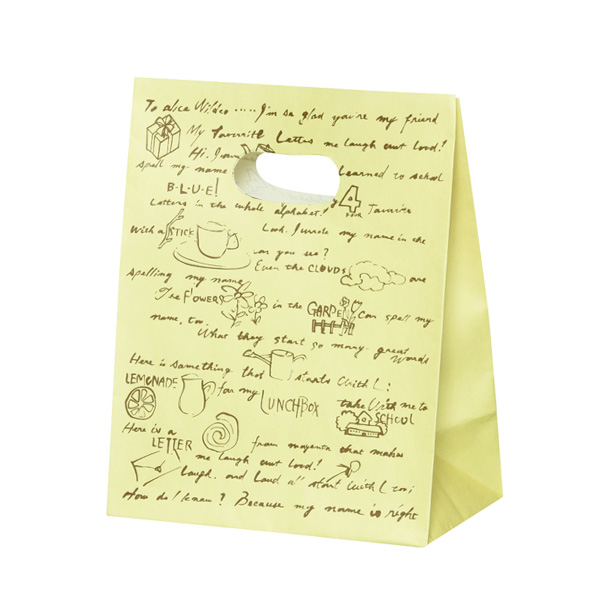 To alice Wilder ..... I'm so glad you're my friend
My favourite Letters me laugh out loud!
Hi. I learned to school
spell my name
B-L-U-E!
4 Favorite
Letters in the whole alphabet!
With a STICK Look. I wrote my name in the
can you see?
Even the CLOUDS are
spelling my name
The FLOWERS in the GARDEN Can spell my
name, too.
What they start so many great words
Here is something that starts with L:
LEMONADE for my LUNCHBOX take with me to SCHOOL
Here is a LETTER from magenta that makes
me laugh out loud!
Laugh. and Loud all start with L too;
How do I know? Because my name is right